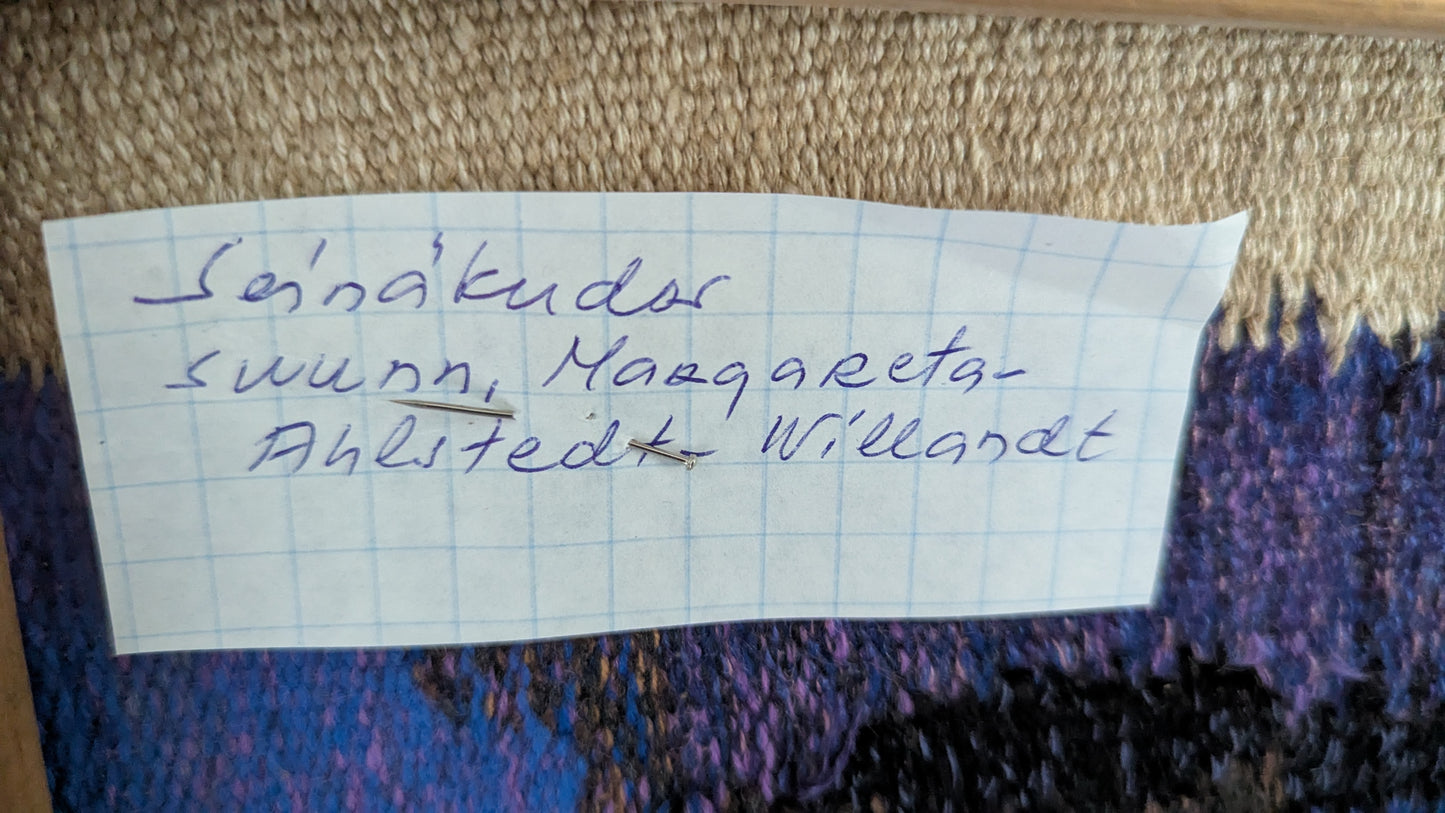 Seinäkudos
suunn, Margareta-
Ahlstedt- Willandt